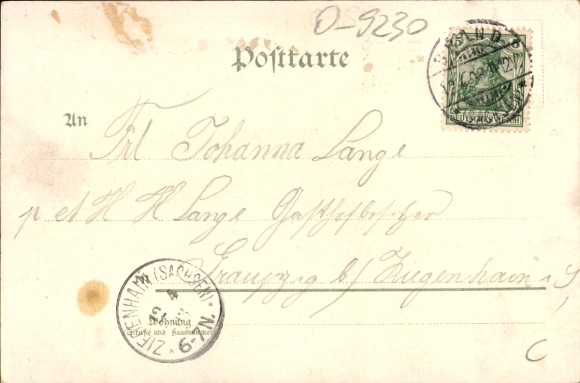 O-9230
Postkarte
DEUTSCHES REICH
An
Frl Johanna Lange
p ad H H Lange Gasthofbesitzer
Graupzig b/ Ziegenhain i/S
ZIEGENHAIN (SACHSEN)
6-7 N.
Wohnung
Straße und Hausnummer
C